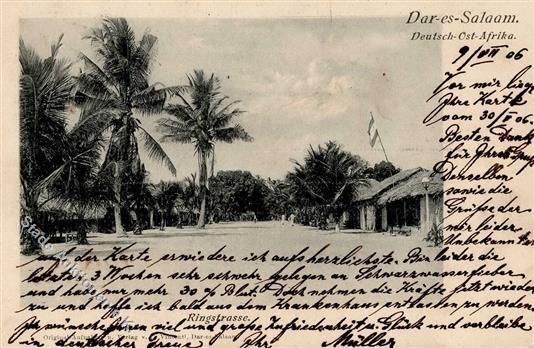 Dar-es-Salaam.
Deutsch-Ost-Afrika.
9/VII 06
Vor mir liegt
Ihre Karte
vom 30/V 06
Besten Dank
für Ihren Gruß
Denselben
sowie die
Grüße der
mir leider
Unbekannten
Karte erwiedere ich aufs herzlichste. Bin leider die
letzten 3 Wochen sehr schwer gelegen an Schwarzwasserfieber
und habe nur mehr 30% Blut. Doch nehmen die Kräfte jetzt wieder
zu und hoffe ich bald aus dem Krankenhaus entlassen zu werden.
Ihr wünsche Ihnen viel und große Zufriedenheit u. Glück und verbleibe
in deutscher Treue Ihr Müller
Ringstrasse.
Verlag v. Vincenti, Dar-es-Salaam